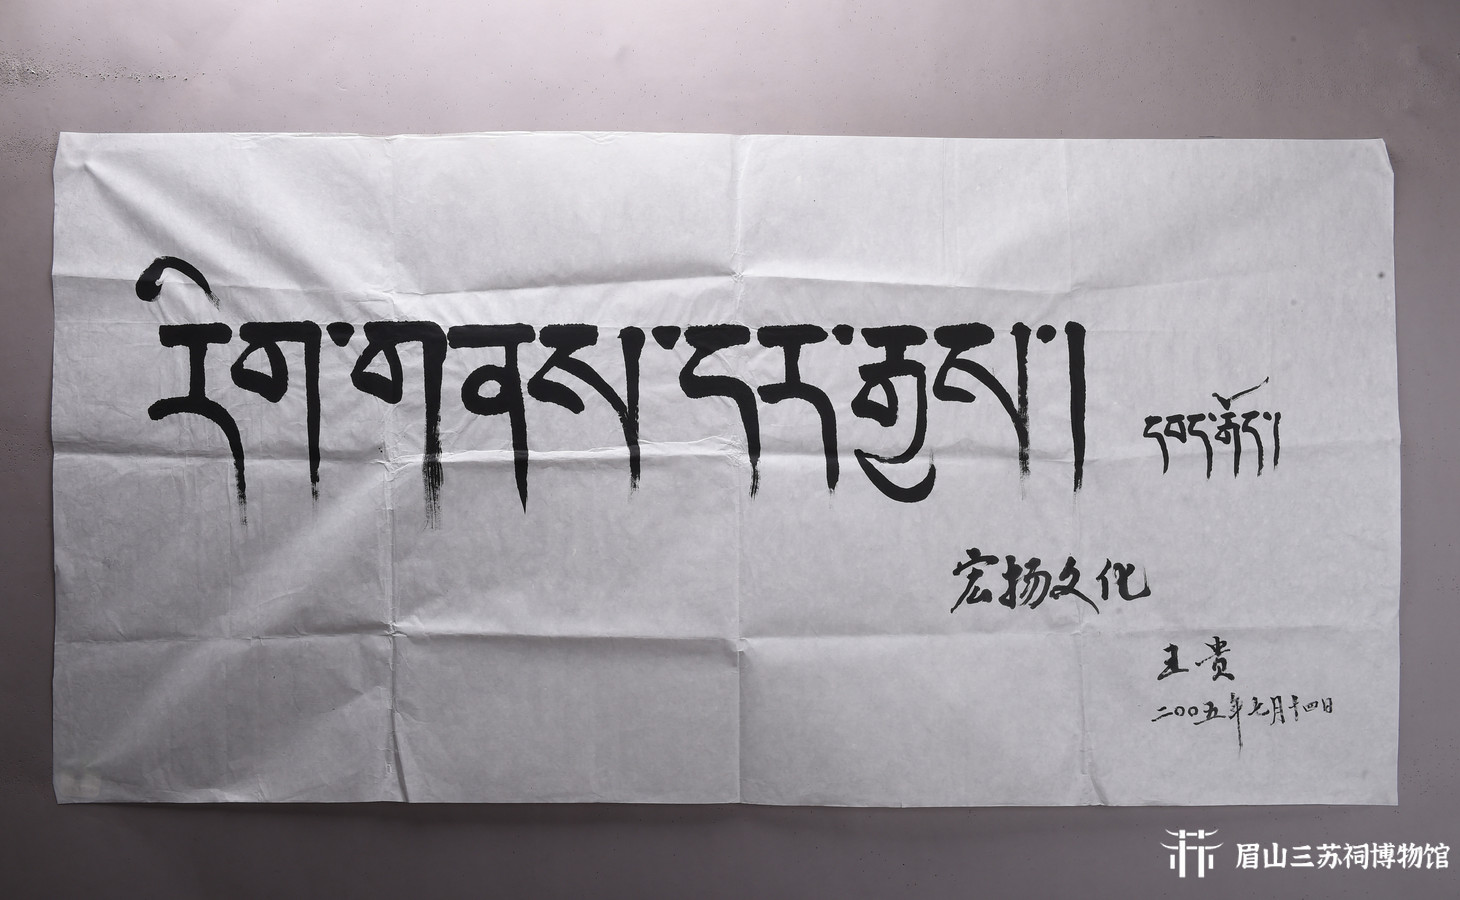 རིག་གནས་དར་རྒྱས།
དབང་
宏扬文化
王贵
二〇〇五年七月十四日
眉山三苏祠博物馆